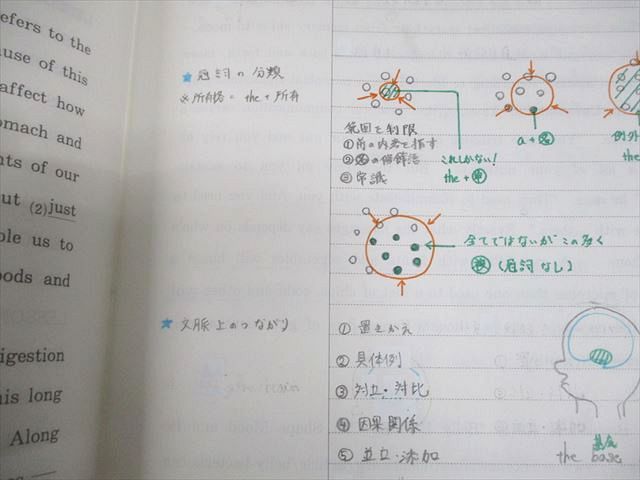 efers to the
use of this
affect how
omach and
nts of our
ut (2)just
ble us to
oods and
igestion
his long
Along
★冠詞の分類
※所有格 = the + 所有
範囲を制限
①前の内容を指す
②名の修飾語
③常識
これしかない!
the + 単
a + 名
例外
the
全てではないがこの多く
複 (冠詞なし)
★文脈上のつながり
①置きかえ
②具体例
③対立・対比
④因果関係
⑤並立・添加
基底
the base